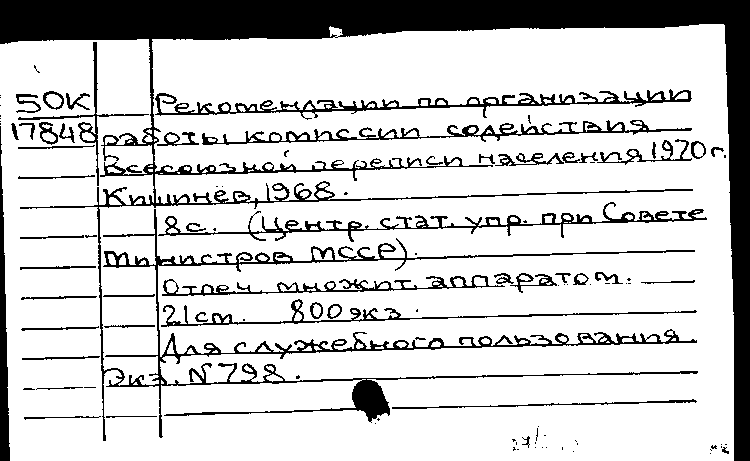 50К Рекомендации по организации
17848 работы комиссии содействия
Всесоюзной переписи населения 1970 г.
Кишинев, 1968.
8с. (Центр. стат. упр. при Совете
Министров МССР).
Отпеч. множит. аппаратом.
21 cm. 800 экз.
Для служебного пользования.
Экз. N 798.